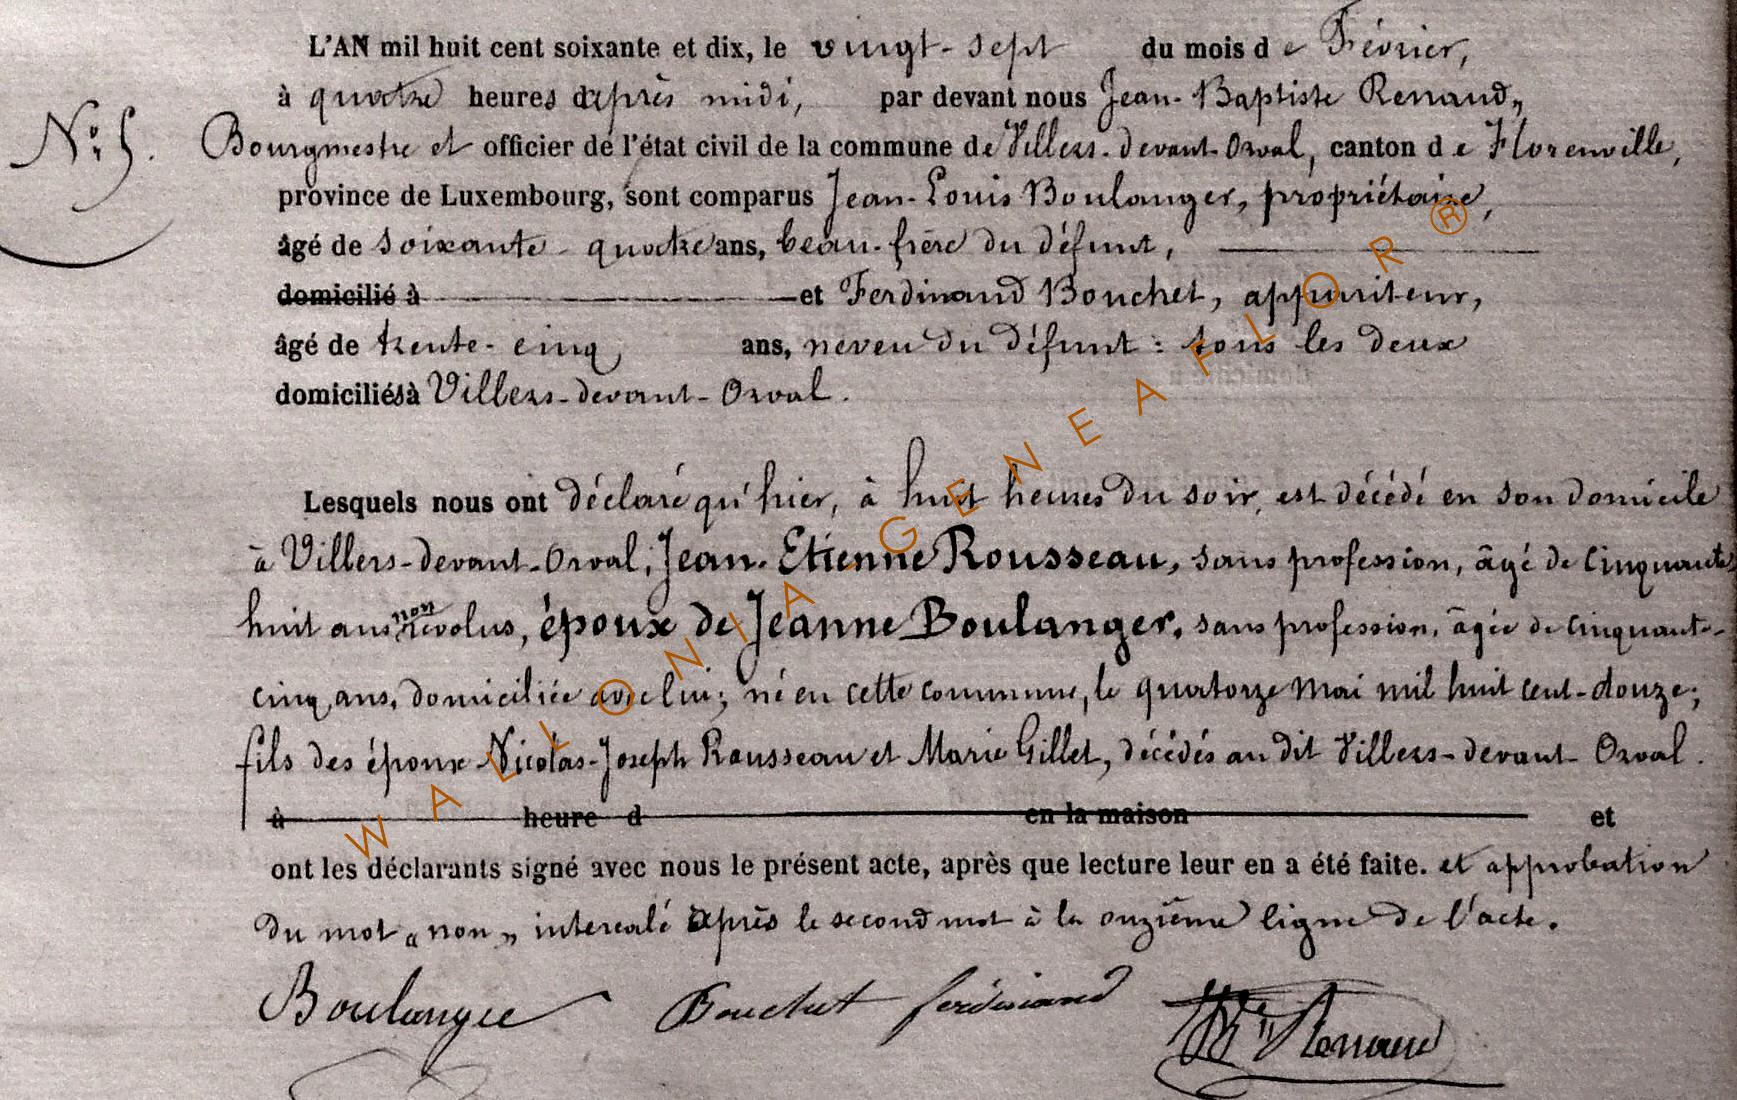 L'AN mil huit cent soixante et dix, le vingt-sept du mois de Février,
à quatre heures d'après midi, par devant nous Jean-Baptiste Renaud,
N.° 5.
Bourgmestre et officier de l'état civil de la commune de Villers-devant-Orval, canton de Florenville,
province de Luxembourg, sont comparus Jean-Louis Boulanger, propriétaire,
âgé de soixante-quatre ans, beau-frère du défunt,
domicilié à et Ferdinand Bouchet, appariteur,
âgé de trente-cinq ans, neveu du défunt : tous les deux
domiciliés à Villers-devant-Orval.
Lesquels nous ont déclaré qu'hier, à huit heures du soir, est décédé en son domicile
à Villers-devant-Orval, Jean-Etienne Rousseau, sans profession, âgé de cinquante-
huit ans non révolus, époux de Jeanne Boulanger, sans profession, âgée de cinquante-
cinq ans, domiciliée avec lui; né en cette commune, le quatorze mai mil huit cent-douze;
fils des époux Nicolas-Joseph Rousseau et Marie Gillet, décédés au dit Villers-devant-Orval.
à heure d en la maison et
ont les déclarants signé avec nous le présent acte, après que lecture leur en a été faite. et approbation
du mot "non" intercalé après le second mot à la onzième ligne de l'acte.
Boulanger Bouchet ferdinand Renaud
WALLONIA GENEAFLOR ®